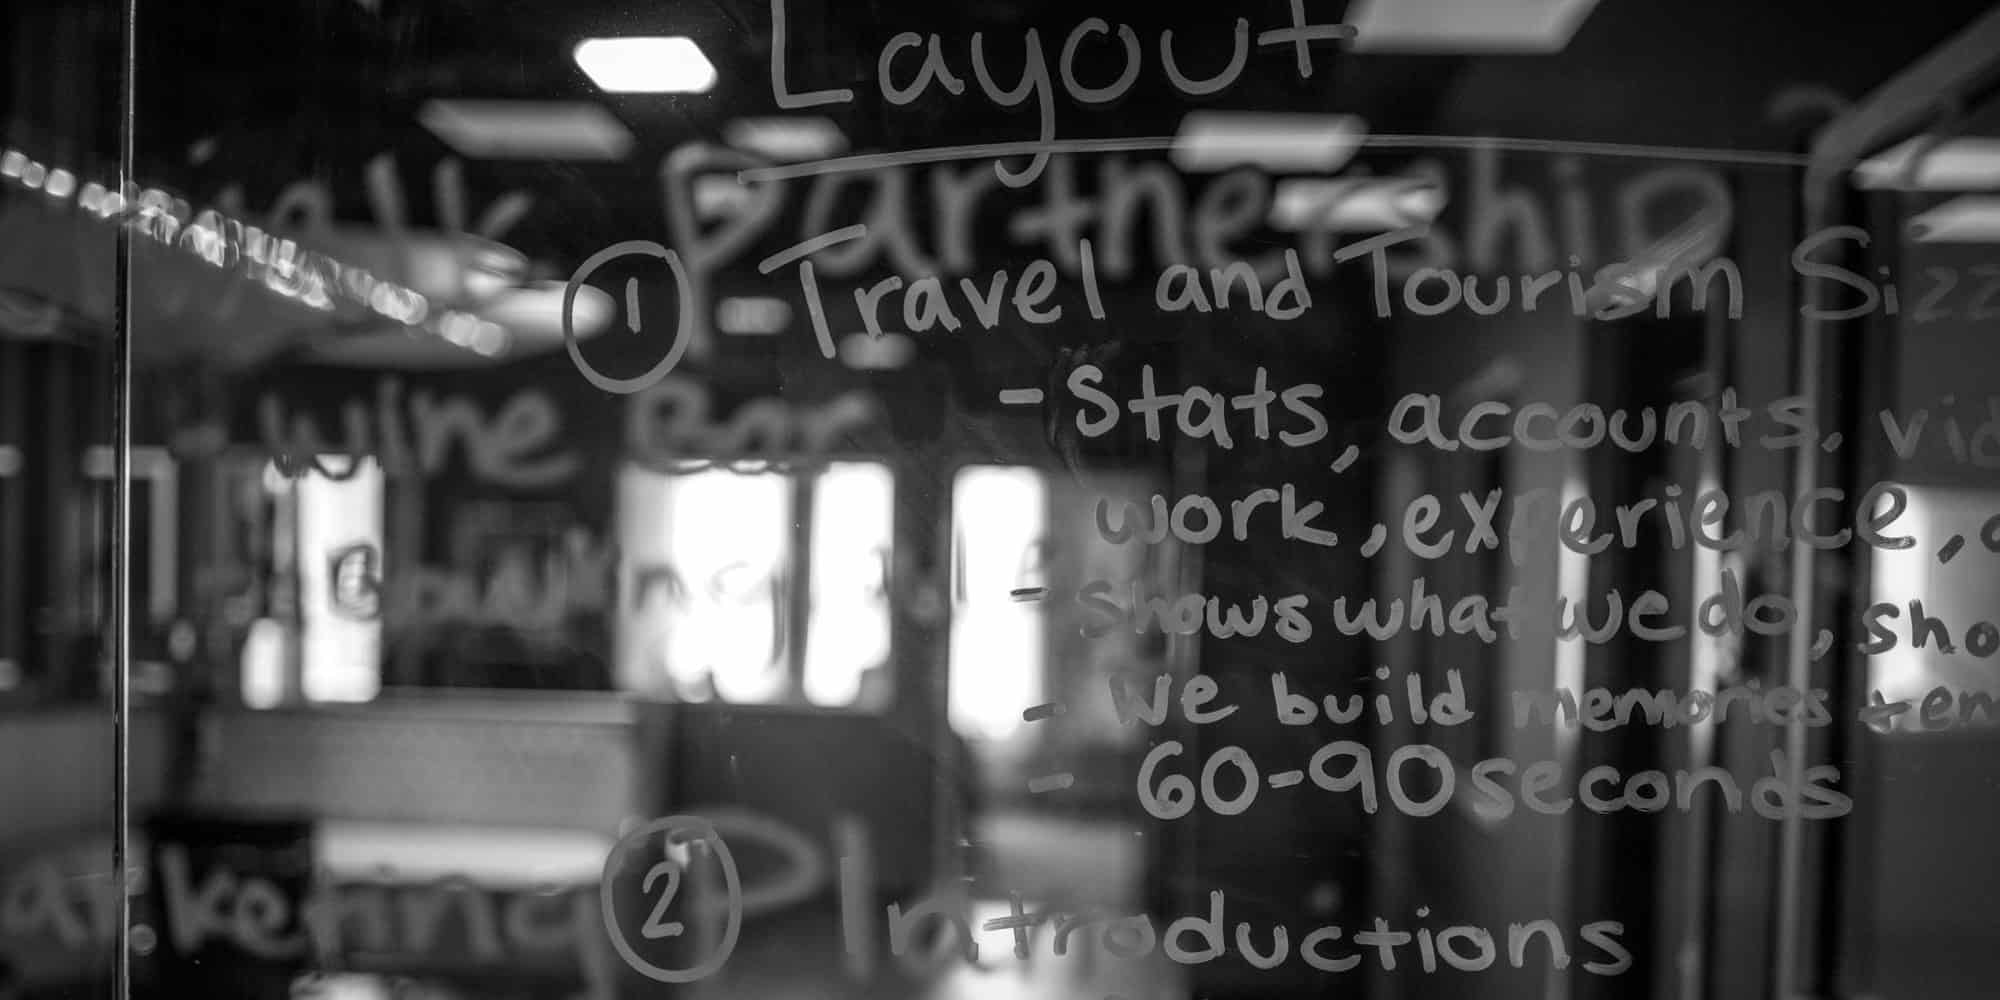 Layout
Partnership
① Travel and Tourism Sizz
- Stats, accounts, vid
work, experience,
- Shows what we do, sho
- We build memories + em
- 60-90 seconds
② Introductions
- wine Bar